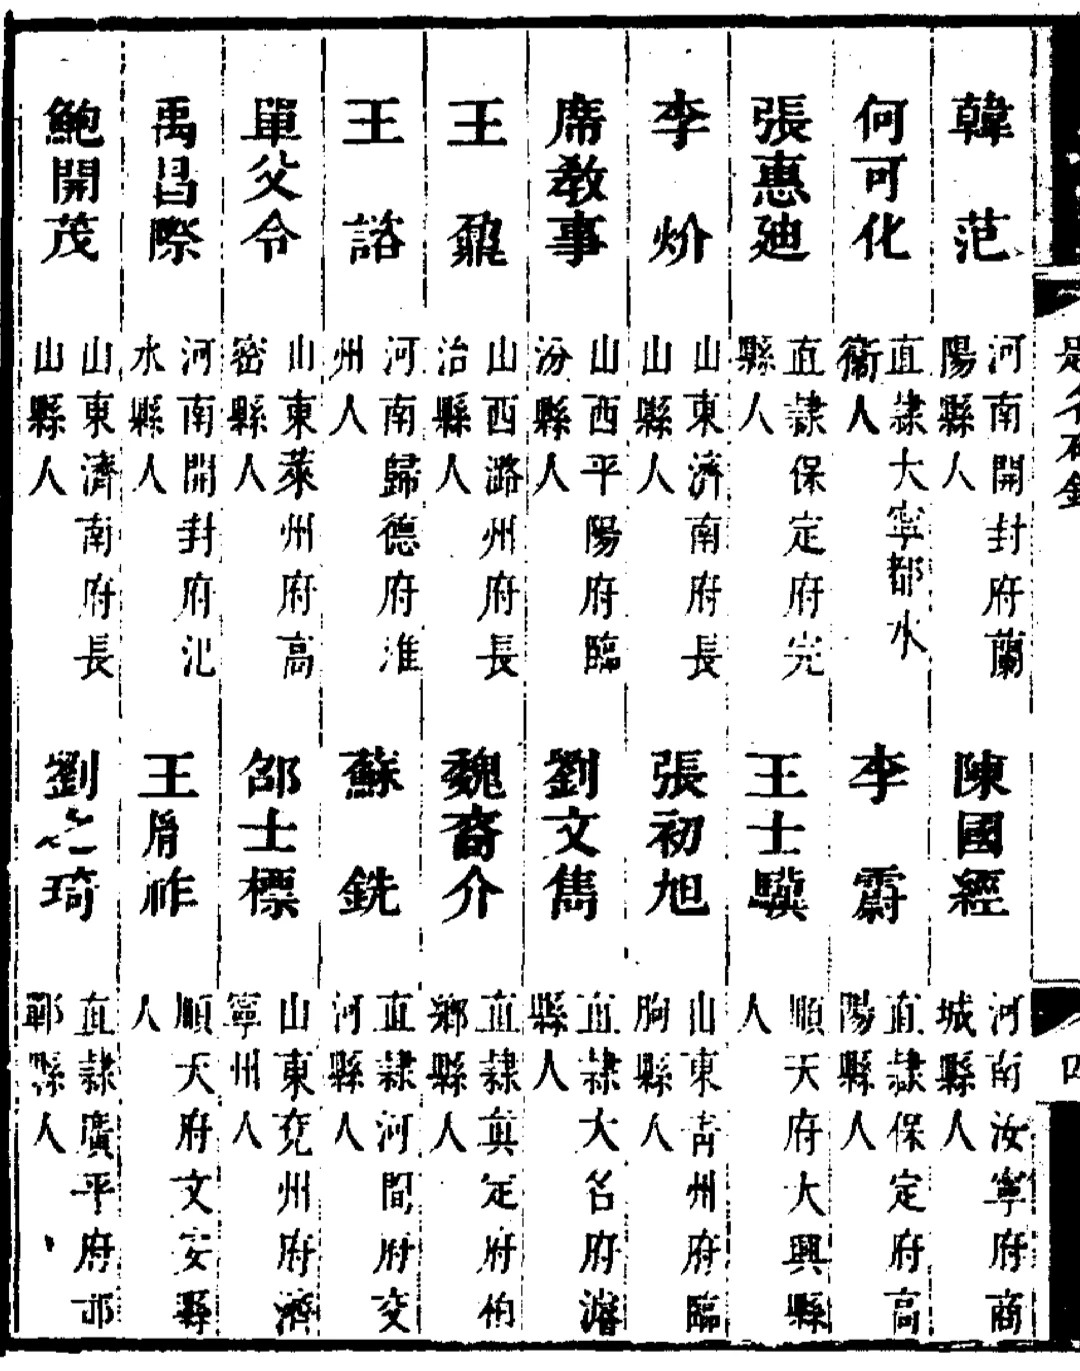 韓范 河南開封府蘭陽縣人
陳國經 河南汝寧府商城縣人
何可化 直隸大寧都水衞人
李霨 直隸保定府高陽縣人
張惠迪 直隸保定府完縣人
王士驥 順天府大興縣人
李炌 山東濟南府長山縣人
張初旭 山東靑州府臨朐縣人
席教事 山西平陽府臨汾縣人
劉文雋 直隸大名府濬縣人
王鼐 山西潞州府長治縣人
魏裔介 直隸眞定府栢鄉縣人
王諮 河南歸德府淮州人
蘇銑 直隸河間府交河縣人
單父令 山東萊州府高密縣人
邵士標 山東兗州府濟寧州人
禹昌際 河南開封府汜水縣人
王胤祚 順天府文安縣人
鮑開茂 山東濟南府長山縣人
劉之琦 直隸廣平府邯鄲縣人
題名碑錄
四